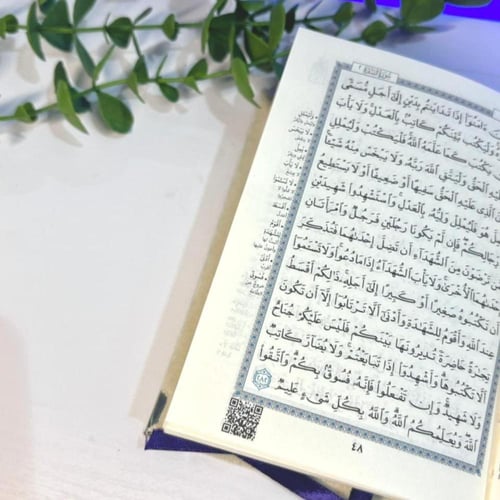 سُورَةُ البَقَرَةِ ٢
ءَامَنُوٓاْ إِذَا تَدَايَنتُم بِدَيۡنٍ إِلَىٰٓ أَجَلٖ مُّسَمّٗى
وَلۡيَكۡتُب بَّيۡنَكُمۡ كَاتِبُۢ بِٱلۡعَدۡلِۚ وَلَا يَأۡبَ
يَكۡتُبَ كَمَا عَلَّمَهُ ٱللَّهُۚ فَلۡيَكۡتُبۡ وَلۡيُمۡلِلِ
ٱلۡحَقُّ وَلۡيَتَّقِ ٱللَّهَ رَبَّهُۥ وَلَا يَبۡخَسۡ مِنۡهُ شَيۡـٔٗاۚ
ٱلَّذِي عَلَيۡهِ ٱلۡحَقُّ سَفِيهًا أَوۡ ضَعِيفًا أَوۡ لَا يَسۡتَطِيعُ
هُوَ فَلۡيُمۡلِلۡ وَلِيُّهُۥ بِٱلۡعَدۡلِۚ وَٱسۡتَشۡهِدُواْ شَهِيدَيۡنِ
فَإِن لَّمۡ يَكُونَا رَجُلَيۡنِ فَرَجُلٞ وَٱمۡرَأَتَانِ
تَرۡضَوۡنَ مِنَ ٱلشُّهَدَآءِ أَن تَضِلَّ إِحۡدَىٰهُمَا فَتُذَكِّرَ
ٱلۡأُخۡرَىٰۚ وَلَا يَأۡبَ ٱلشُّهَدَآءُ إِذَا مَا دُعُواْۚ وَلَا تَسۡـَٔمُوٓاْ
أَن تَكۡتُبُوهُ صَغِيرًا أَوۡ كَبِيرًا إِلَىٰٓ أَجَلِهِۦۚ ذَٰلِكُمۡ أَقۡسَطُ
عِندَ ٱللَّهِ وَأَقۡوَمُ لِلشَّهَٰدَةِ وَأَدۡنَىٰٓ أَلَّا تَرۡتَابُوٓاْ إِلَّآ أَن تَكُونَ
تِجَٰرَةً حَاضِرَةٗ تُدِيرُونَهَا بَيۡنَكُمۡ فَلَيۡسَ عَلَيۡكُمۡ جُنَاحٌ
أَلَّا تَكۡتُبُوهَاۗ وَأَشۡهِدُوٓاْ إِذَا تَبَايَعۡتُمۡۚ وَلَا يُضَآرَّ كَاتِبٞ
وَلَا شَهِيدٞۚ وَإِن تَفۡعَلُواْ فَإِنَّهُۥ فُسُوقُۢ بِكُمۡۗ وَٱتَّقُواْ
ٱللَّهَۖ وَيُعَلِّمُكُمُ ٱللَّهُۗ وَٱللَّهُ بِكُلِّ شَيۡءٍ عَلِيمٞ ٢٨٢
٤٨